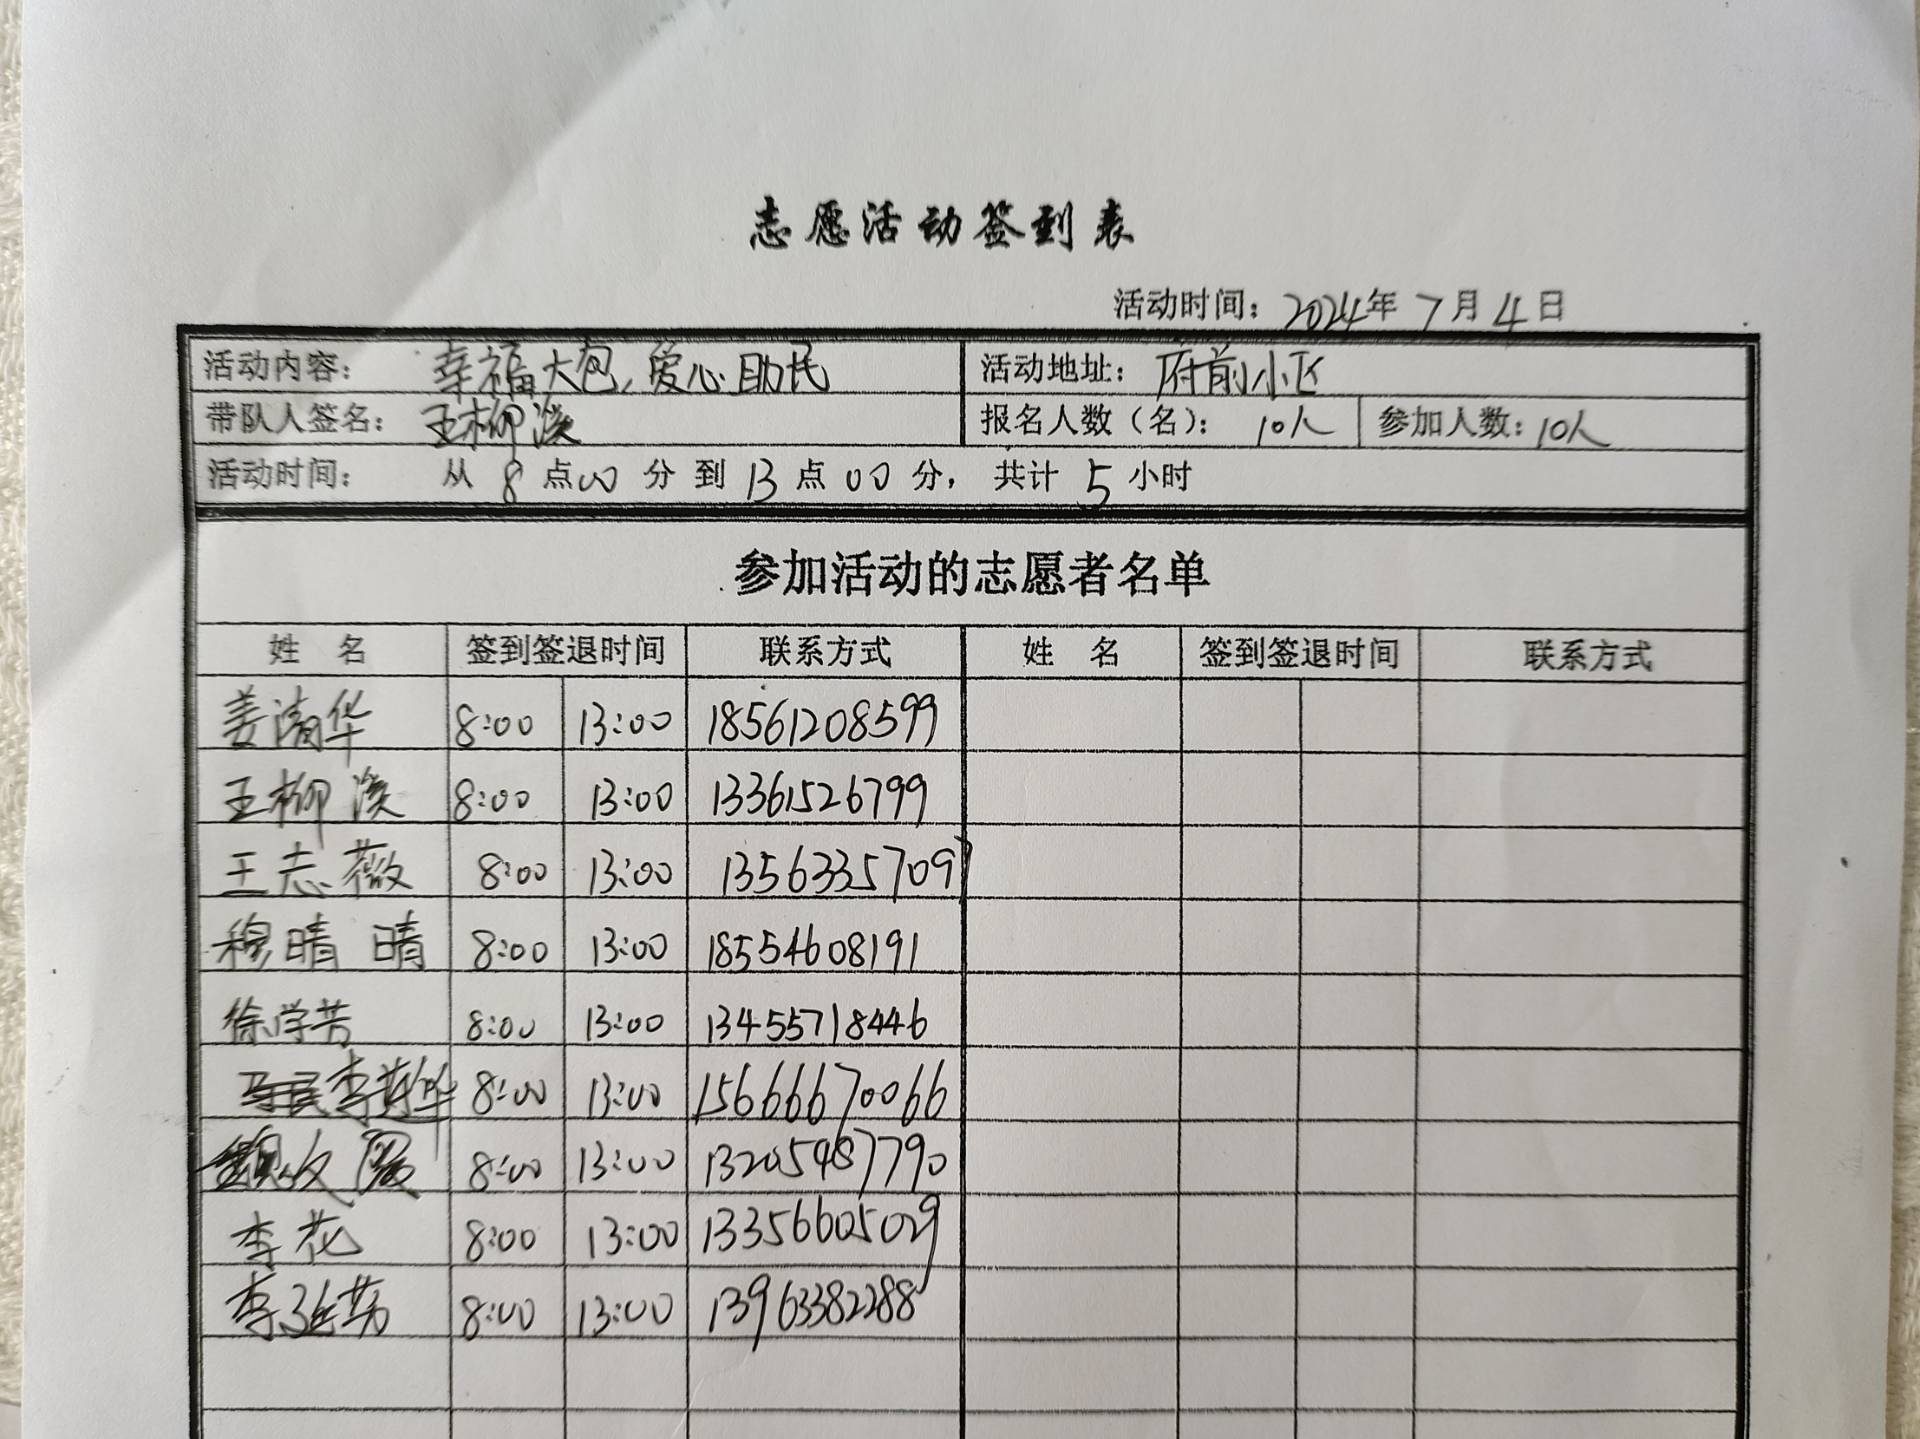 志愿活动签到表
活动时间：2024年 7月 4日
活动内容： 幸福大包，爱心助民 活动地址： 府前小区
带队人签名： 王柳溪 报名人数（名）： 10人 参加人数：10人
活动时间： 从 8 点 00 分 到 13 点 00 分， 共计 5 小时
参加活动的志愿者名单
姓 名 签到签退时间 联系方式 姓 名 签到签退时间 联系方式
姜清华 8:00 13:00 18561208599
王柳溪 8:00 13:00 13361526799
王志薇 8:00 13:00 13563357097
穆晴晴 8:00 13:00 18554608191
徐学芳 8:00 13:00 13455718446
李 华 8:00 13:00 15666670066
8:00 13:00 13205487790
李花 8:00 13:00 13356605029
李延芬 8:00 13:00 13963382288